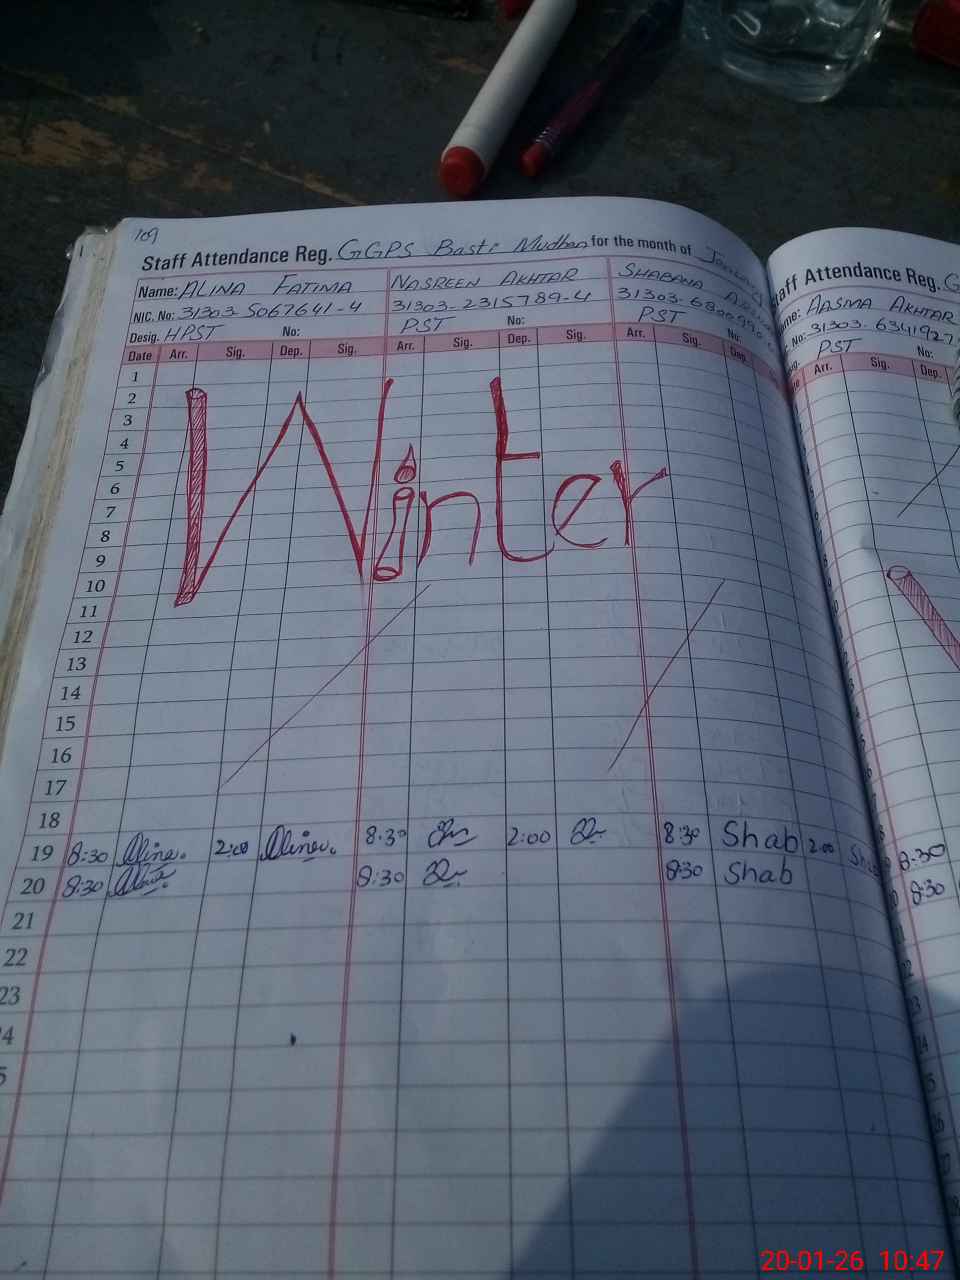 109
Staff Attendance Reg. GGPS Basti Mudhan for the month of January
Name: ALINA FATIMA NASREEN AKHTAR SHABANA
NIC. No: 31303-5067641-4 31303-2315789-4 31303-
Desig. HPST No: PST No: PST No:
Date Arr. Sig. Dep. Sig. Arr. Sig. Dep. Sig. Arr. Sig. Dep.
1
2
3
4
5
6
7
8
9
10
11
12
13
14
15
16
17
18
Winter
19 8:30 Alina. 2:00 Alina. 8:30 2:00 8:30 Shab 2:00
20 8:30 Alina 8:30 8:30 Shab
21
22
23
Staff Attendance Reg. G
AASMA AKHTAR
No: 31303-6341927
PST No:
Arr. Sig. Dep.
8:30
8:30
20-01-26 10:47